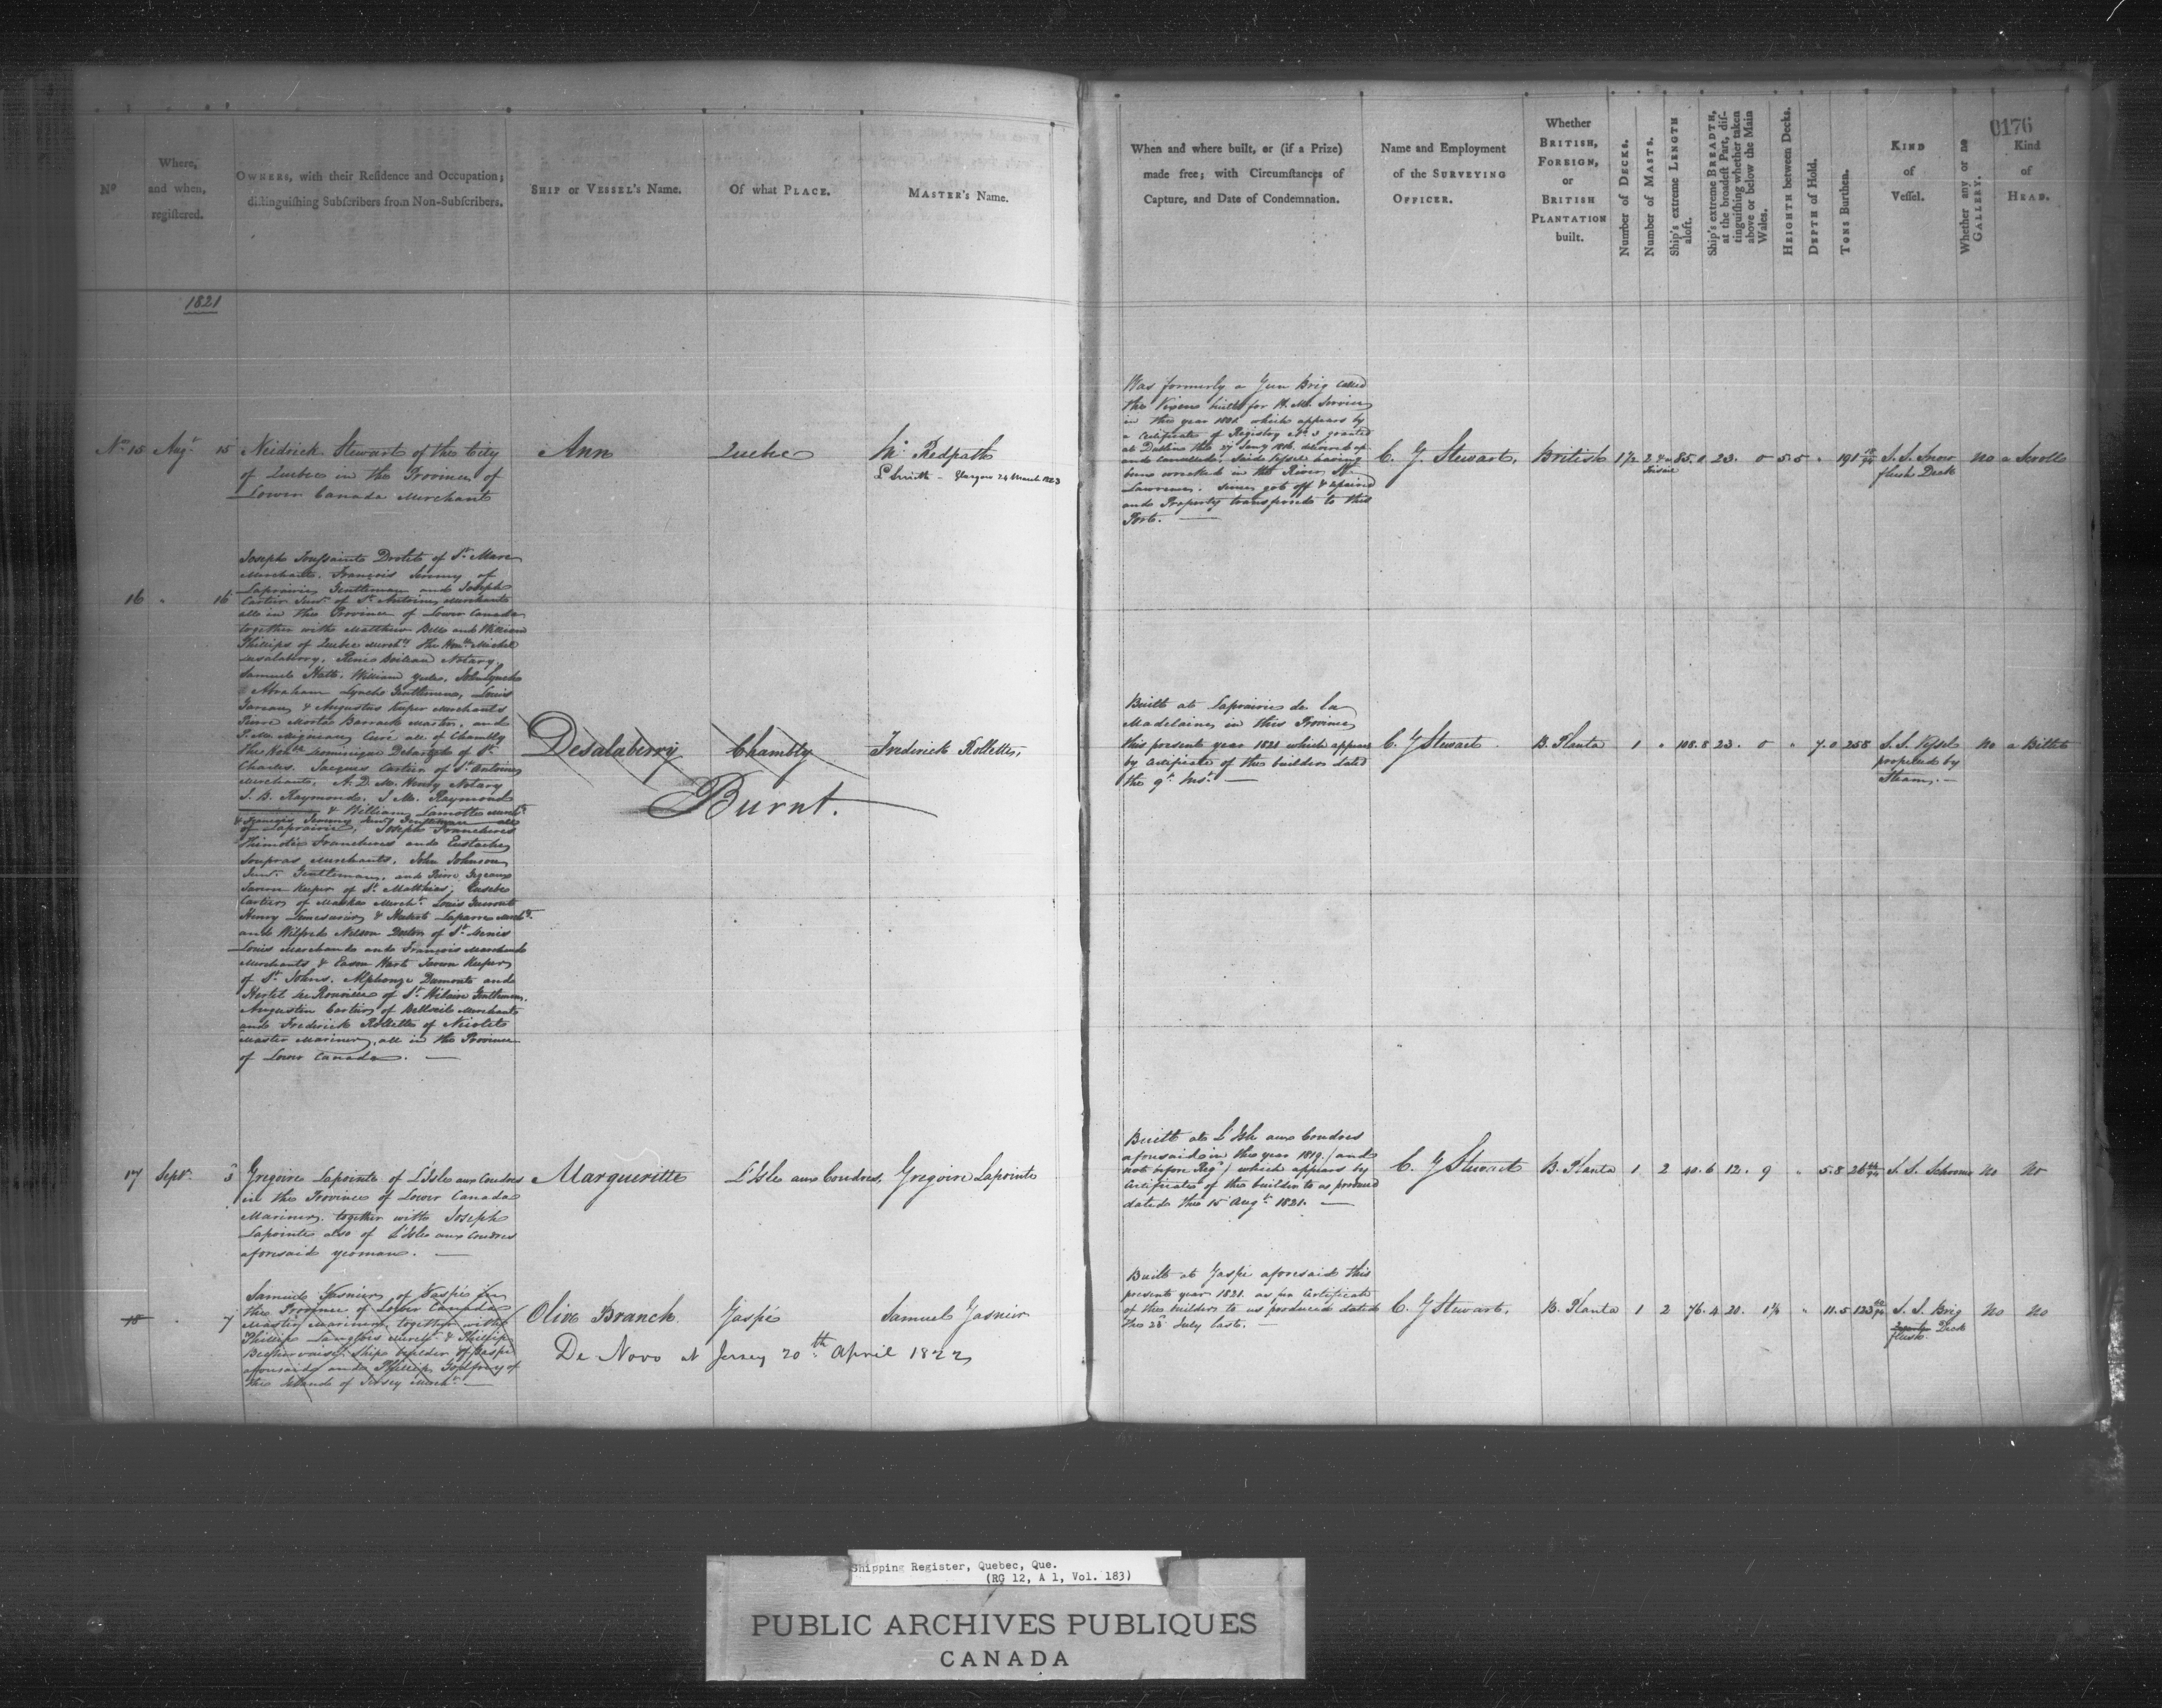 0176
Nº
Where,
and when,
registered.
OWNERS, with their Residence and Occupation;
distinguishing Subscribers from Non-Subscribers.
SHIP or VESSEL's Name.
Of what PLACE.
MASTER's Name.
When and where built, or (if a Prize)
made free; with Circumstances of
Capture, and Date of Condemnation.
Name and Employment
of the SURVEYING
OFFICER.
Whether
BRITISH,
FOREIGN,
or
BRITISH
PLANTATION
built.
Number of DECKS.
Number of MASTS.
Ship's extreme LENGTH
aloft.
Ship's extreme BREADTH,
at the broadest Part, dis-
tinguishing whether taken
above or below the Main
Wales.
HEIGHTH between Decks.
DEPTH of Hold.
TONS Burthen.
KIND
of
Vessel.
Whether any or no
GALLERY.
Kind
of
HEAD.
1821
No 15 Augt 15
Neidrick Stewart of the City
of Quebec in the Province of
Lower Canada Merchant
Ann
Quebec
Redpath
Smith - Glasgow 24 March 1823
Was formerly a Gun Brig called
the Vixen built for H. M. Service
in the year 1801 which appears by
a Certificate of Registry No 3 granted
at Dublin the 27 Jany 1816 delivered up
and cancelled, said Vessel having
been wrecked in the River St
Lawrence. Since got off & repaired
and Property transferred to this
Port.
C. G. Stewart,
British
1½ 2 85.0 23. 0 5.5 " 191
S. S. Snow
flush Deck
No
a Scroll
16 " 16
Joseph Toussaint Drolet of St Marc
Merchant. François Jeremy of
Laprairie, Gentleman and Joseph
Cartier Junr of St Antoine, Merchants
all in the Province of Lower Canada
together with Matthew Bell and William
Phillips of Quebec Mercht The Honble Michel
Desalaberry, René Boileau Notary
Samuel Hatt. William Yule, John Lynch
Abraham Lynch Gentlemen, Louis
& Augustus Kuper Merchants
Pierre Barrack Master, and
P. M. Mignault Curé all of Chambly
the Honble Dominique Debartzch of St
Charles. Jacques Cartier of St Antoine
Merchants, Notary
J. B. Raymond. J. M. Raymond
& William Lamotte Merchts
of Laprairie, Joseph Franchere
Thimotée Franchere and Eustache
Soupras Merchants. John Johnson
Junr Gentleman, and Pierre
Tavern Keeper of St Matthias; Eusebe
Cartier of Maska Mercht. Louis
Henry & Laparre Merchts
and Wilfred Nelson Doctor of St Denis
Louis Marchand and François Marchand
Merchants & Hart Tavern Keeper
of St Johns. Alphonze Dumont and
Hertel de Rouville of St Hilaire Gentlemen,
Augustin Cartier of Belloeil Merchants
and Frederick Rollette of Nicolet
Master Mariner, all in the Province
of Lower Canada.
Desalaberry
Chambly
Frederick Rollette,
Burnt.
Built at Laprairie de la
Madelaine, in this Province
this present year 1821 which appears
by Certificate of the builder dated
the 9th Inst.
C. G Stewart
B. Planta
1 " 108.8 23. 0 " 7.0 258
S. S. Vessel
propelled by
Steam,
No
a Billet
17 Septr. 3
Gregoire Lapointe of L'Isle aux Coudres
in the Province of Lower Canada
Mariner, together with Joseph
Lapointe also of L'Isle aux Coudres
aforesaid yeoman.
Margueritte
L'Isle aux Coudres,
Gregoire Lapointe
Built at L'Isle aux Coudres
aforesaid in the year 1819, (and
not before Regd) which appears by
Certificate of the builder to us produced
dated the 15 Augt 1821.
C. G Stewart
B. Planta
1 2 40.6 12. 9 " 5.8 26
S. S. Schooner
No
No
18 " 7
Samuel Gasnier, of Gaspé in
the Province of Lower Canada
Master Mariner, together with
Phillip Langlois Mercht & Phillip
ship builder of Gaspé
aforesaid and Phillip Godfray of
the Island of Jersey Mercht.
Olive Branch
Gaspé
Samuel Gasnier
De Novo at Jersey 20th April 1822
Built at Gaspé aforesaid this
present year 1821. as per Certificate
of the builder to us produced dated
the 28 July last.
C. G Stewart,
B. Planta
1 2 76.4 20. 1¼ " 11.5 123
S. S. Brig
flush Deck
No
No
Shipping Register, Quebec, Que.
(RG 12, A 1, Vol. 183)
PUBLIC ARCHIVES PUBLIQUES
CANADA